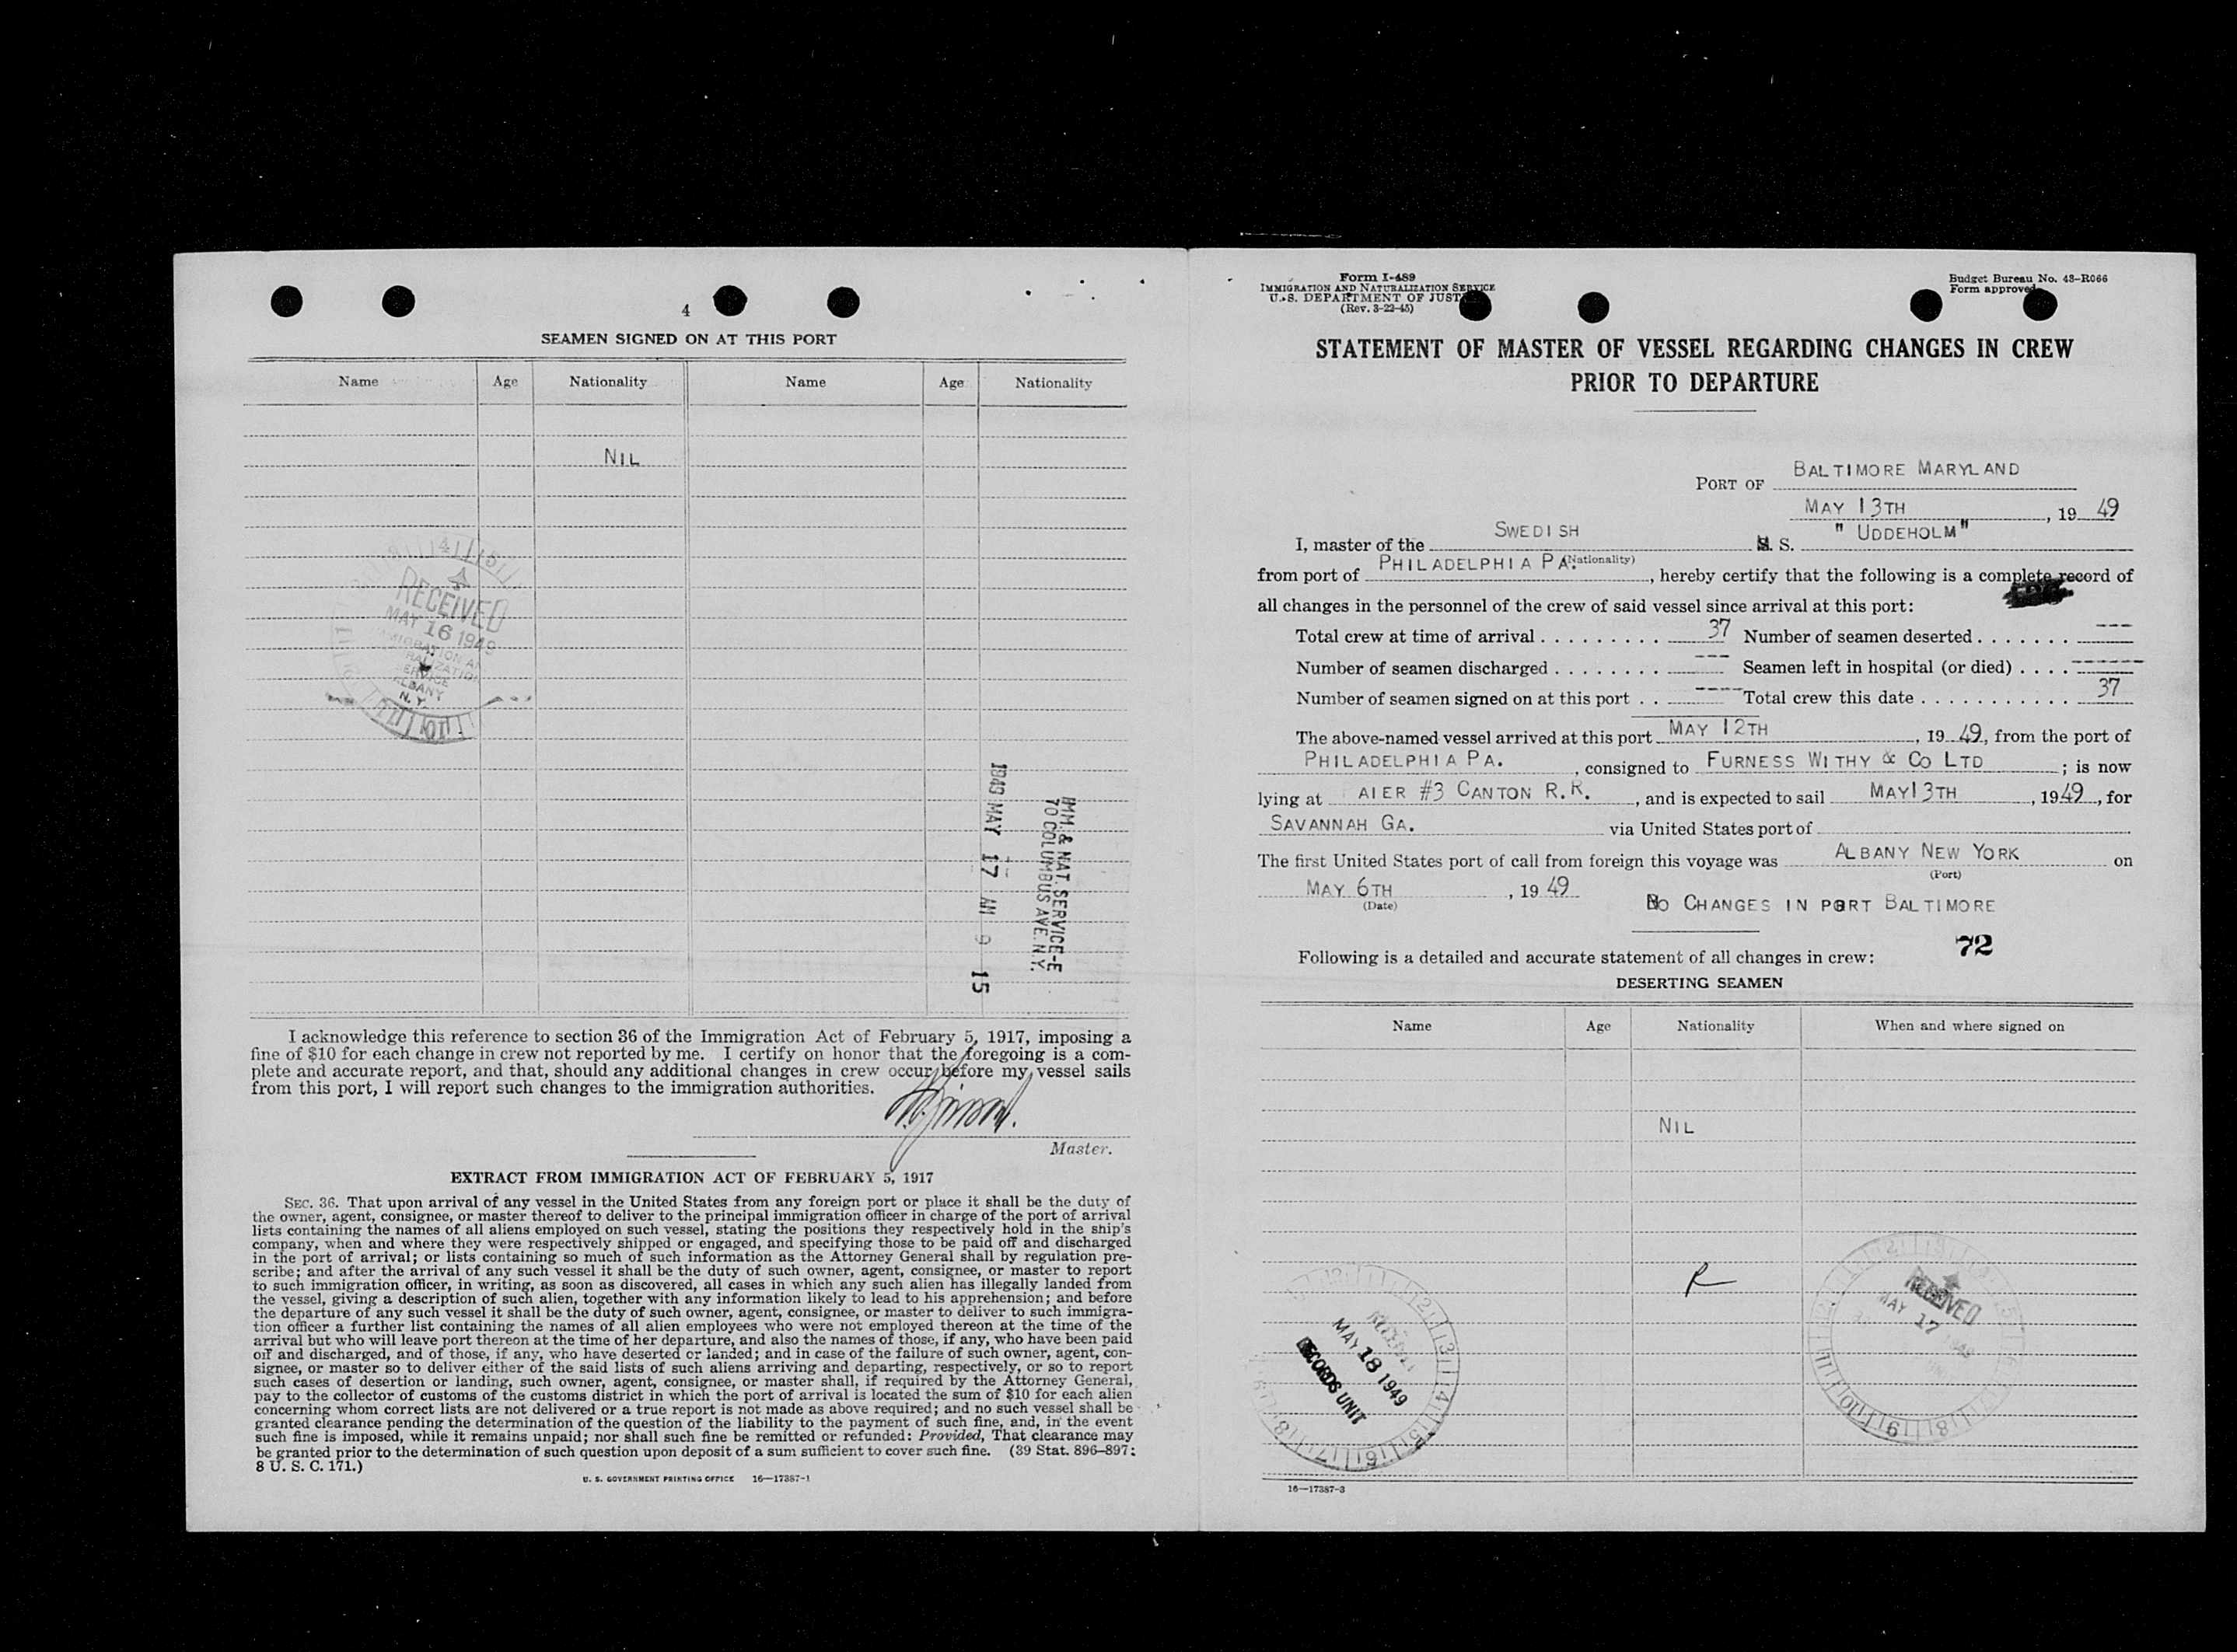 4
SEAMEN SIGNED ON AT THIS PORT
Name Age Nationality Name Age Nationality
NIL
RECEIVED
MAY 16 1949
ALBANY
N. Y.
1949 MAY 17 AM 9 15
IMM. & NAT. SERVICE-E
70 COLUMBUS AVE. N.Y.
I acknowledge this reference to section 36 of the Immigration Act of February 5, 1917, imposing a
fine of $10 for each change in crew not reported by me. I certify on honor that the foregoing is a com-
plete and accurate report, and that, should any additional changes in crew occur before my vessel sails
from this port, I will report such changes to the immigration authorities.
Master.
EXTRACT FROM IMMIGRATION ACT OF FEBRUARY 5, 1917
SEC. 36. That upon arrival of any vessel in the United States from any foreign port or place it shall be the duty of
the owner, agent, consignee, or master thereof to deliver to the principal immigration officer in charge of the port of arrival
lists containing the names of all aliens employed on such vessel, stating the positions they respectively hold in the ship's
company, when and where they were respectively shipped or engaged, and specifying those to be paid off and discharged
in the port of arrival; or lists containing so much of such information as the Attorney General shall by regulation pre-
scribe; and after the arrival of any such vessel it shall be the duty of such owner, agent, consignee, or master to report
to such immigration officer, in writing, as soon as discovered, all cases in which any such alien has illegally landed from
the vessel, giving a description of such alien, together with any information likely to lead to his apprehension; and before
the departure of any such vessel it shall be the duty of such owner, agent, consignee, or master to deliver to such immigra-
tion officer a further list containing the names of all alien employees who were not employed thereon at the time of the
arrival but who will leave port thereon at the time of her departure, and also the names of those, if any, who have been paid
off and discharged, and of those, if any, who have deserted or landed; and in case of the failure of such owner, agent, con-
signee, or master so to deliver either of the said lists of such aliens arriving and departing, respectively, or so to report
such cases of desertion or landing, such owner, agent, consignee, or master shall, if required by the Attorney General,
pay to the collector of customs of the customs district in which the port of arrival is located the sum of $10 for each alien
concerning whom correct lists are not delivered or a true report is not made as above required; and no such vessel shall be
granted clearance pending the determination of the question of the liability to the payment of such fine, and, in the event
such fine is imposed, while it remains unpaid; nor shall such fine be remitted or refunded: Provided, That clearance may
be granted prior to the determination of such question upon deposit of a sum sufficient to cover such fine. (39 Stat. 896–897;
8 U. S. C. 171.)
U. S. GOVERNMENT PRINTING OFFICE 16—17387-1
Form I-489
IMMIGRATION AND NATURALIZATION SERVICE
U. S. DEPARTMENT OF JUST
(Rev. 3-22-45)
Budget Bureau No. 43-R066
Form approved
STATEMENT OF MASTER OF VESSEL REGARDING CHANGES IN CREW
PRIOR TO DEPARTURE
PORT OF BALTIMORE MARYLAND
MAY 13TH, 19 49
I, master of the SWEDISH S. " UDDEHOLM"
(Nationality)
from port of PHILADELPHIA PA., hereby certify that the following is a complete record of
all changes in the personnel of the crew of said vessel since arrival at this port:
Total crew at time of arrival . . . . . . . . . 37 Number of seamen deserted . . . . . . . ---
Number of seamen discharged . . . . . . . . --- Seamen left in hospital (or died) . . . . ------
Number of seamen signed on at this port . . ---- Total crew this date . . . . . . . . . . . 37
The above-named vessel arrived at this port MAY 12TH, 19 49, from the port of
PHILADELPHIA PA., consigned to FURNESS WITHY & CO LTD; is now
lying at AIER #3 CANTON R.R., and is expected to sail MAY13TH, 1949, for
SAVANNAH GA. via United States port of
The first United States port of call from foreign this voyage was ALBANY NEW YORK on
(Port)
MAY 6TH, 19 49
(Date)
NO CHANGES IN PORT BALTIMORE
72
Following is a detailed and accurate statement of all changes in crew:
DESERTING SEAMEN
Name Age Nationality When and where signed on
NIL
R
RECEIVED
MAY 18 1949
RECORDS UNIT
RECEIVED
MAY 17 1949
16—17387-3